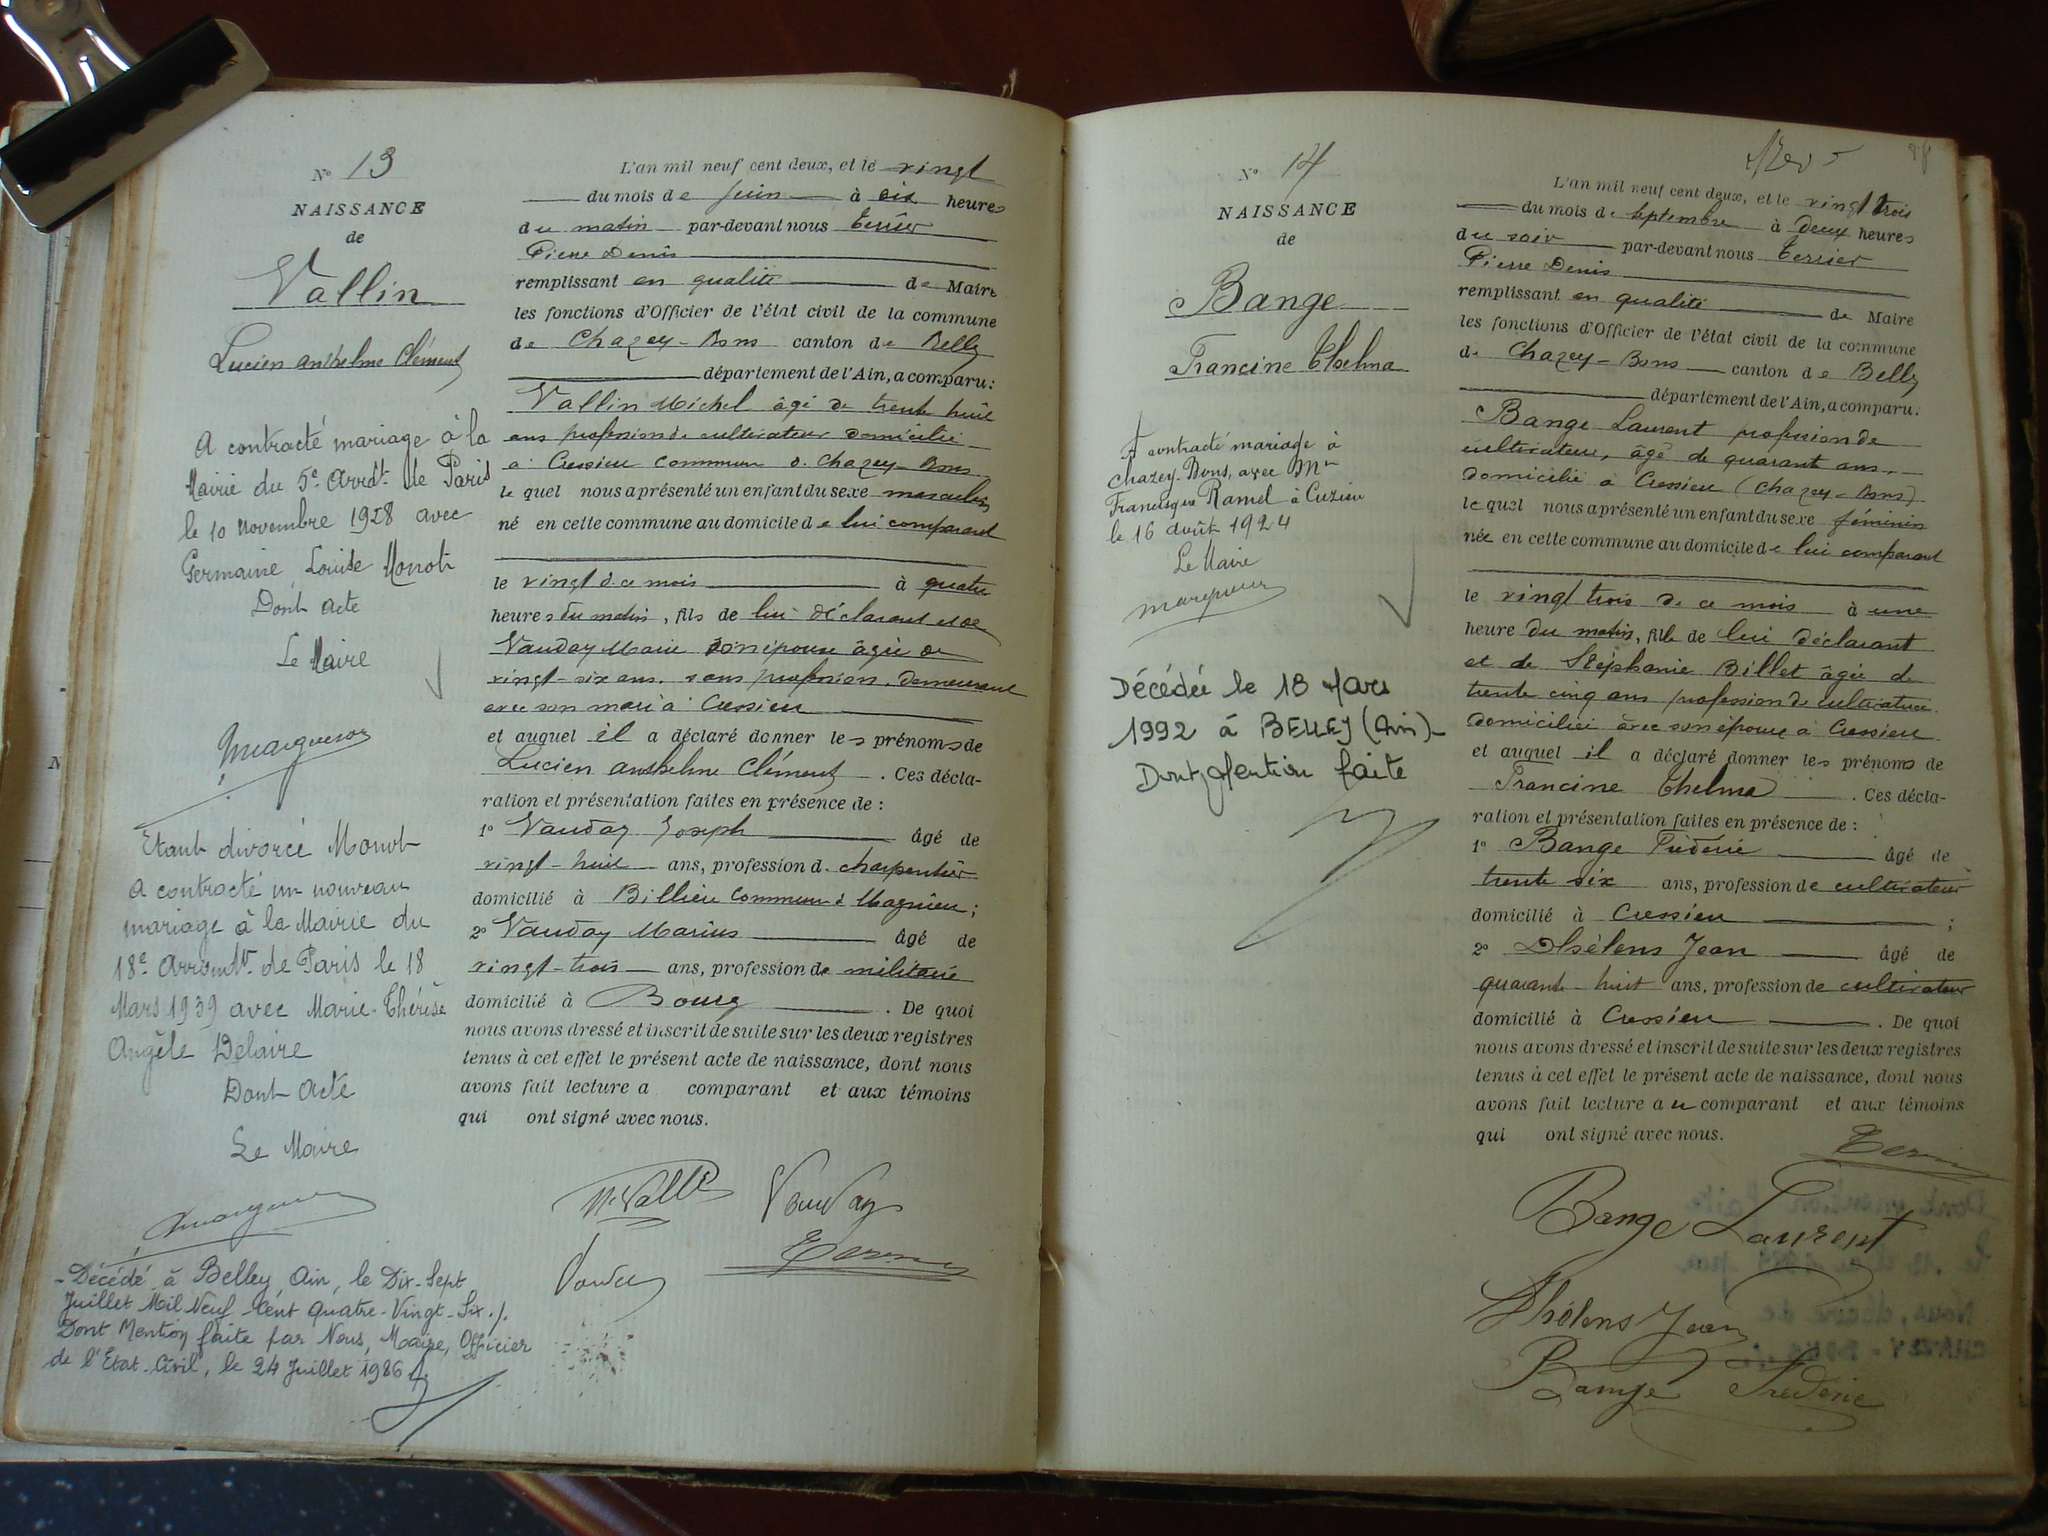 N° 13
NAISSANCE
de
Vallin
Lucien Anthelme Clément
A contracté mariage à la
Mairie du 5e Arrdt de Paris
le 10 novembre 1928 avec
Germaine Louise Monot
Dont acte
Le Maire
Etant divorcé Monot
a contracté un nouveau
mariage à la Mairie du
18e Arrondt de Paris le 18
Mars 1939 avec Marie-Thérèse
Angèle Delaire
Dont acte
Le Maire
- Décédé à Belley Ain, le Dix-Sept
Juillet Mil Neuf Cent Quatre-Vingt-Six ./.
Dont Mention faite par Nous, Maire, Officier
de l'Etat-Civil, le 24 Juillet 1986 ./.
L'an mil neuf cent deux, et le vingt
du mois de juin à six heures
du matin par-devant nous Terrier
Pierre Denis
remplissant en qualité de Maire
les fonctions d'Officier de l'état civil de la commune
de Chazey-Bons canton de Belley
département de l'Ain, a comparu :
Vallin Michel âgé de trente huit
ans profession de cultivateur domicilié
à Cressieu commune d. Chazey-Bons
le quel nous a présenté un enfant du sexe masculin
né en cette commune au domicile de lui comparant
le vingt d. ce mois à quatre
heures du matin, fils de lui déclarant et de
Vauday Marie son épouse âgée de
vingt-six ans, sans profession, demeurant
avec son mari à Cressieu
et auquel il a déclaré donner les prénoms de
Lucien Anthelme Clément . Ces décla-
ration et présentation faites en présence de :
1° Vauday Joseph âgé de
vingt-huit ans, profession d. charpentier
domicilié à Billieu commune d. Magnieu ;
2° Vauday Marius âgé de
vingt-trois ans, profession de militaire
domicilié à Bourg . De quoi
nous avons dressé et inscrit de suite sur les deux registres
tenus à cet effet le présent acte de naissance, dont nous
avons fait lecture a comparant et aux témoins
qui ont signé avec nous.
Vauday
N° 14
NAISSANCE
de
Bange
Francine Thelma
A contracté mariage à
Chazey-Bons, avec Mr
Francisque Ramel à Cuzieu
le 16 août 1924
Le Maire
Décédée le 18 Mars
1992 à BELLEY (Ain)-
Dont Mention faite
L'an mil neuf cent deux, et le vingt trois
du mois de septembre à deux heures
du soir par-devant nous Terrier
Pierre Denis
remplissant en qualité de Maire
les fonctions d'Officier de l'état civil de la commune
de Chazey-Bons canton de Belley
département de l'Ain, a comparu :
Bange Laurent profession de
cultivateur, âgé de quarante ans,
domicilié à Cressieu (Chazey-Bons)
le quel nous a présenté un enfant du sexe féminin
née en cette commune au domicile de lui comparant
le vingt trois de ce mois à une
heure du matin, fille de lui déclarant
et de Stéphanie Billet âgée de
trente cinq ans profession de cultivatrice
domiciliée avec son époux à Cressieu
et auquel il a déclaré donner les prénoms de
Francine Thelma . Ces décla-
ration et présentation faites en présence de :
1° Bange Fréderic âgé de
trente six ans, profession de cultivateur
domicilié à Cressieu ;
2° Dhélens Jean âgé de
quarante-huit ans, profession de cultivateur
domicilié à Cressieu . De quoi
nous avons dressé et inscrit de suite sur les deux registres
tenus à cet effet le présent acte de naissance, dont nous
avons fait lecture au comparant et aux témoins
qui ont signé avec nous.
Bange Laurent
Dhélens Jean
Bange Fréderic